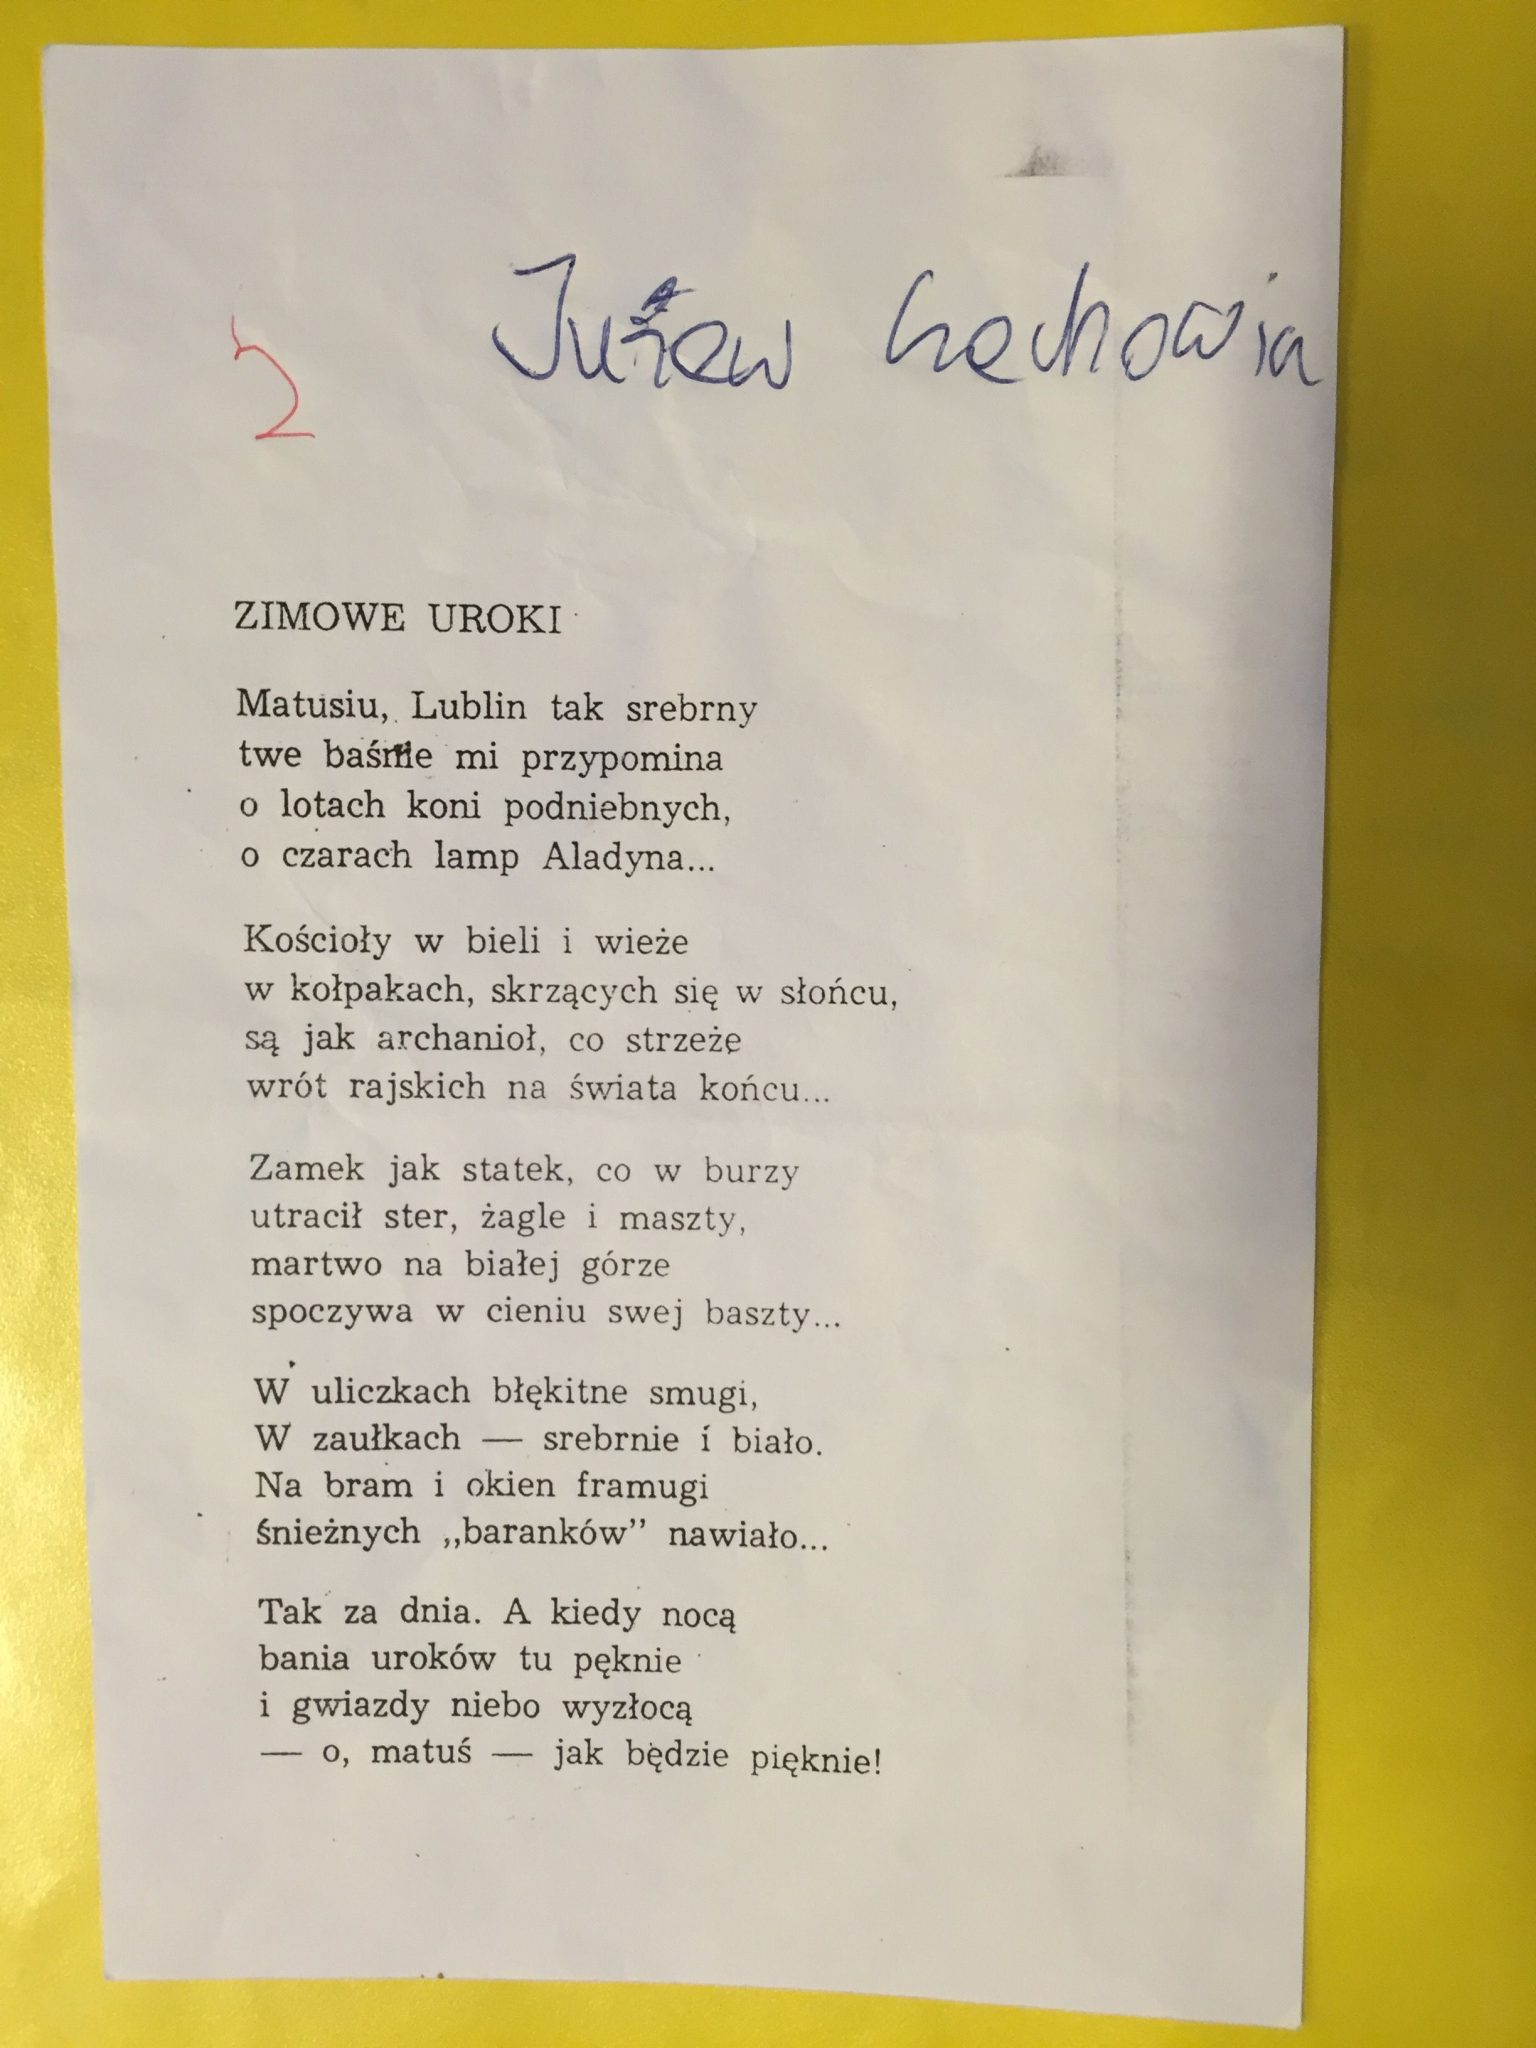 Józew Czechowicz
2
ZIMOWE UROKI
Matusiu, Lublin tak srebrny
twe baśnie mi przypomina
o lotach koni podniebnych,
o czarach lamp Aladyna...
Kościoły w bieli i wieże
w kołpakach, skrzących się w słońcu,
są jak archanioł, co strzeże
wrót rajskich na świata końcu...
Zamek jak statek, co w burzy
utracił ster, żagle i maszty,
martwo na białej górze
spoczywa w cieniu swej baszty...
W uliczkach błękitne smugi,
W zaułkach — srebrnie i biało.
Na bram i okien framugi
śnieżnych „baranków” nawiało...
Tak za dnia. A kiedy nocą
bania uroków tu pęknie
i gwiazdy niebo wyzłocą
— o, matuś — jak będzie pięknie!